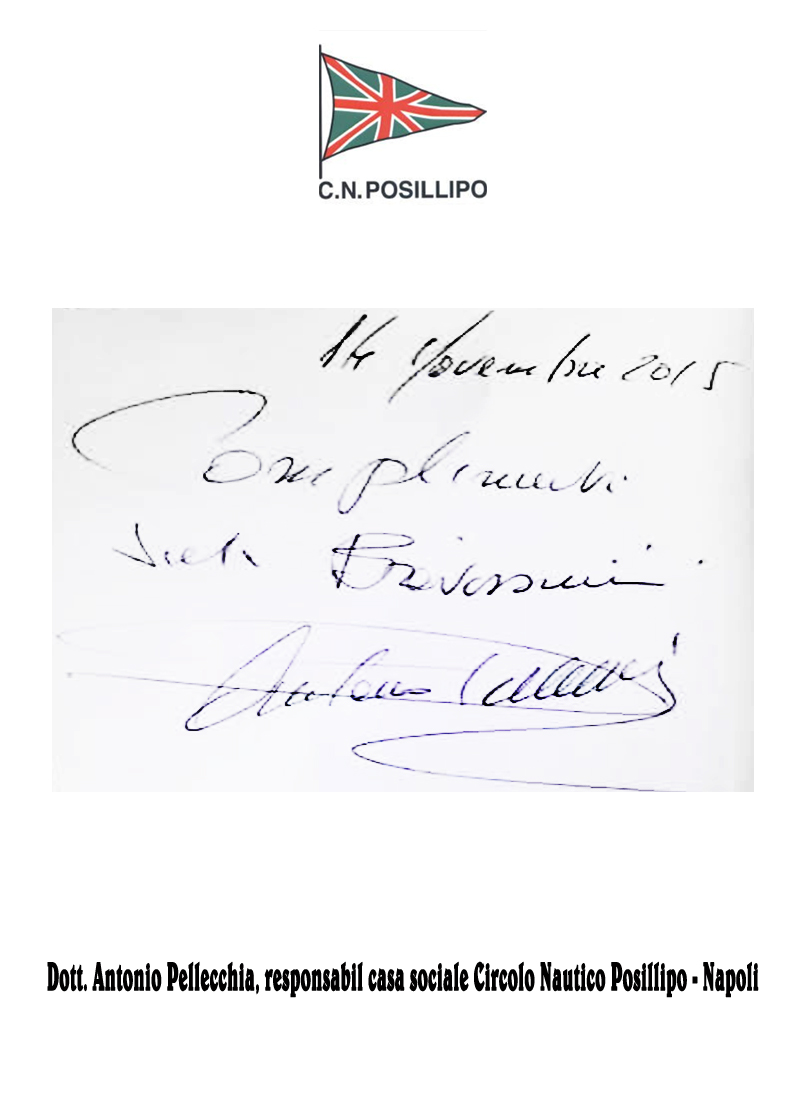 C.N.POSILLIPO
14 Novembre 2015
Complimenti
siete Bravissimi
Antonio Pellecchia
Dott. Antonio Pellecchia, responsabil casa sociale Circolo Nautico Posillipo - Napoli